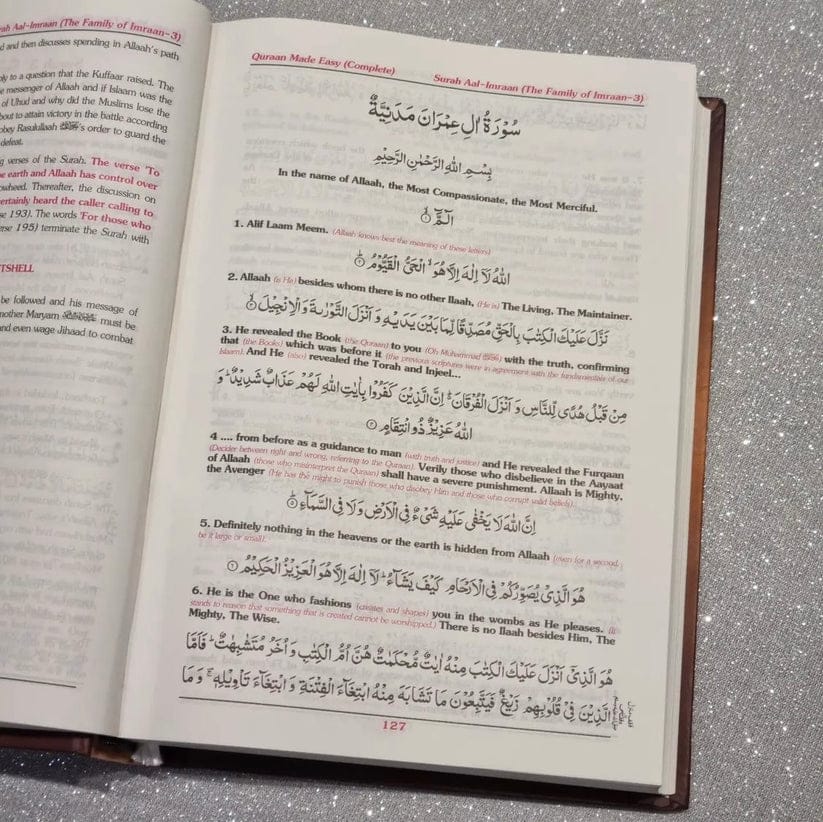 rah Aal-Imraan (The Family of Imraan-3)
d and then discusses spending in Allaah's path
ly to a question that the Kuffaar raised. The
e messenger of Allaah and if Islaam was the
of Uhud and why did the Muslims lose the
bout to attain victory in the battle according
obey Rasulullaah ﷺ's order to guard the
defeat.
g verses of the Surah. The verse 'To
e earth and Allaah has control over
owheed. Thereafter, the discussion on
ertainly heard the caller calling to
se 193). The words 'For those who
erse 195) terminate the Surah with
TSHELL
be followed and his message of
mother Maryam must be
and even wage Jihaad to combat
Quraan Made Easy (Complete)
Surah Aal-Imraan (The Family of Imraan-3)
سُوْرَةُ اٰلِ عِمْرَانَ مَدَنِيَّةٌ
بِسْمِ اللّٰهِ الرَّحْمٰنِ الرَّحِيْمِ
In the name of Allaah, the Most Compassionate, the Most Merciful.
الٓمّٓ ۙ﴿۱﴾
1. Alif Laam Meem. (Allaah knows best the meaning of these letters)
اللّٰهُ لَاۤ اِلٰهَ اِلَّا هُوَ ۙ الْحَىُّ الْقَيُّوْمُ ؕ﴿۲﴾
2. Allaah (is He) besides whom there is no other Ilaah, (He is) The Living, The Maintainer.
نَزَّلَ عَلَيْكَ الْكِتٰبَ بِالْحَقِّ مُصَدِّقًا لِّمَا بَيْنَ يَدَيْهِ وَ اَنْزَلَ التَّوْرٰىةَ وَ الْاِنْجِيْلَ ۙ﴿۳﴾
3. He revealed the Book (the Quraan) to you (Oh Muhammad ﷺ) with the truth, confirming
that (the Books) which was before it (the previous scriptures were in agreement with the fundamentals of our
Islaam). And He (also) revealed the Torah and Injeel...
مِنْ قَبْلُ هُدًى لِّلنَّاسِ وَ اَنْزَلَ الْفُرْقَانَ ؕ اِنَّ الَّذِيْنَ كَفَرُوْا بِاٰيٰتِ اللّٰهِ لَهُمْ عَذَابٌ شَدِيْدٌ ؕ وَ
اللّٰهُ عَزِيْزٌ ذُو انْتِقَامٍ ﴿۴﴾
4 .... from before as a guidance to man (with truth and justice) and He revealed the Furqaan
(Decider between right and wrong, referring to the Quraan). Verily those who disbelieve in the Aayaat
of Allaah (those who misinterpret the Quraan) shall have a severe punishment. Allaah is Mighty,
the Avenger (He has the might to punish those who disobey Him and those who corrupt valid beliefs).
اِنَّ اللّٰهَ لَا يَخْفٰى عَلَيْهِ شَىْءٌ فِى الْاَرْضِ وَ لَا فِى السَّمَآءِ ؕ﴿۵﴾
5. Definitely nothing in the heavens or the earth is hidden from Allaah (even for a second,
be it large or small).
هُوَ الَّذِىْ يُصَوِّرُكُمْ فِى الْاَرْحَامِ كَيْفَ يَشَآءُ ؕ لَاۤ اِلٰهَ اِلَّا هُوَ الْعَزِيْزُ الْحَكِيْمُ ﴿۶﴾
6. He is the One who fashions (creates and shapes) you in the wombs as He pleases. (It
stands to reason that something that is created cannot be worshipped.) There is no Ilaah besides Him, The
Mighty, The Wise.
هُوَ الَّذِىْۤ اَنْزَلَ عَلَيْكَ الْكِتٰبَ مِنْهُ اٰيٰتٌ مُّحْكَمٰتٌ هُنَّ اُمُّ الْكِتٰبِ وَ اُخَرُ مُتَشٰبِهٰتٌ ؕ فَاَمَّا
الَّذِيْنَ فِىْ قُلُوْبِهِمْ زَيْغٌ فَيَتَّبِعُوْنَ مَا تَشَابَهَ مِنْهُ ابْتِغَآءَ الْفِتْنَةِ وَ ابْتِغَآءَ تَاْوِيْلِهٖ ۚ وَ مَا
127